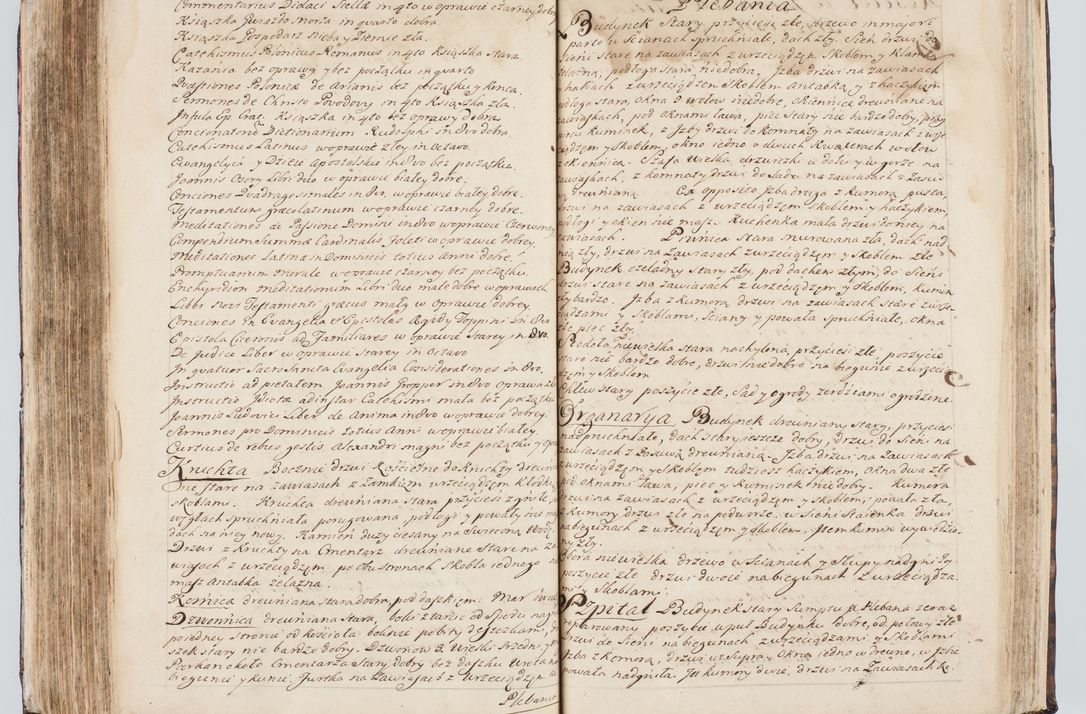 Commentarius Didaci Stellæ in 4to w oprawie czarney dobry
Ksiązka Gwiazdo Morza in quarto dobra
Ksiązka Gospodarz Nieba y Ziemie zła.
Catechismus Polonicus Romanus in 4to Ksiązka stara.
Kazania bez oprawy y bez początku in quarto
Quæstiones Polonicæ de Arianis bez początku y konca.
Sermones de Christo Powodowy in 4to Ksiązka zła.
Ksiązka in 4to bez oprawy dobra
Concionatorũ Dictionarium Rudolphi in 8vo dobra
Catechismus Latinus w oprawie złey in Octavo.
Ewangelye y Dzieie Apostolskie in 8vo bez początku.
Joannis Osory Libri duo w oprawie białey dobre.
Conciones Quadragesimales in 8vo w oprawie białey dobre.
Testamentum græcolatinum w oprawie czarney dobre.
Meditationes de Passione Domini in 8vo w oprawie Czerwoney
Compendium Summæ Cardinalis Toleti w oprawie dobrey.
Meditationes Latina in Dominicis totius Anni dobre
Promptuarium Morale w oprawie czarney bez początku.
Enchyridion meditationum Libri duo małe dobre w oprawach
Liber Novi Testamenti græcus mały w oprawie dobrey
Conciones in Evangelia et Epistolas in 8vo
Epistola Ciceronis ad Familiares w oprawie Starey in 8vo.
De Judice Liber w oprawie Starey in Octavo
In quatuor Sacrosancta Evangelia Considerationes in 8vo.
Instructio ad pietatem Joannis Gropper in 8vo oprawa zła
Instructio ad instar Catechismi mała bez początku
Joannis Ludovici Liber de Anima in 8vo w oprawie dobrey.
Sermones pro Dominicis totius Anni w oprawie białey.
Curtius de rebus gestis Alexandri magni bez początku y
Kruchta Bocznie drzwi Koscielne do Kruchty drewnia
ne stare na zawiasach z Zamkiem wrzeciądzem Kłodką
Skoblami. Kruchta drewniana stara przyciesi zgniłe,
węgłach spruchniała porugowana podłogi y powały nie ma
dach na niey nowy. Kamień duzy ciesany na Swieconą Wodę.
Drzwi z Kruchty na Cmentarz drewniane Stare na za
wiasach z wrzeciądzem po obu stronach Skobla iednego nie
masz Antabka zelazna.
Kosnica drewniana stara dobra, pod daszkiem.
Dzwonnica drewniana stara, belki z tarcic od Spodu na
poiedney stronie od Kościoła bokiem pobity deszczkami,
szek stary nie bardzo dobry. Dzwonów 3. wielki Średni y
Parkan około Cmentarza Stary dobry bez daszku Wrota na
biegunie y kunie. Furtka na Zawiasach z wrzeciądzem
Plebania

Plebania
Budynek Stary przyciesi złe, drzewo in majori
parte w Scianach spruchniałe, dach zły. Sien drzwi do
Sieni stare na zawiasach z wrzeciądzem Skoblem y Klamk
zelazna, podłoga stara niedobra, Jzba drzwi na zawiasach
hakach z wrzeciądzem Skoblem Antabką y z haczykiem
podłoga stara, okna 3 w ołow niedobre, okiennice drewniane na
zawiaskach, pod oknami Ława, piec Stary nie bardzo dobry, przy
piecu Kuminek, z Jzby drzwi do Komnaty na zawiasach z wrze
ciądzem y Skoblem, okno iedno o dwuch Kwaterach w ołow
z Kiennicą. Szafa wielka drzwiczki u dołu y w gorze na
zawiaskach, z komnaty drzwi do Sadu na zawiasach z zasu
wą drewnianą. Ex opposito Jzba druga z Kumorą pusta,
drzwi na zawiasach z wrzeciądzem Skoblem y haczykiem,
podłogi y okien nie masz. Kuchenka mała drzwi do niey na
zawiasach. Piwnica stara murowana zła, dach nad
nią zły, drzwi na Zawiasach z wrzeciądzem y Skoblem złe
Budynek czeladny stary zły, pod dachem złym, do Sieni
drzwi stare na zawiasach z wrzeciądzem y Skoblem, Kumin
zły bardzo. Jzba z Kumorą drzwi na zawiasach stare z wrze
ciądzami y Skoblami, Sciany y powała spruchniałe, okna
złe piec zły.
Stodoła niewielka stara nachylona, przyciesi złe, poszycie
stare nie bardzo dobre, drzwi niedobre na biegunie z wrzecią
dzem y Skoblem
Chlew stary poszycie złe, Sad y ogrody zerdziami ogrodzone.
Organarya Budynek drewniany Stary, przyciesi
nadpruchniałe, dach stary ieszcze dobry, drzwi do Sieni na
zawiasach z Zasuwą drewnianą. Jzba drzwi na Zawiasach
z wrzeciądzem y Skoblem tudziesz haczykiem, okna dwa złe
pod oknami Ława, piec y Kuminek nie dobry. Kumora
drzwi na zawiasach z wrzeciądzem y Skoblem, powała zła,
z Kumory drzwi złe na podworze. w Sieni Staienka drzwi
na biegunach z wrzeciądzem y Skoblem. Item Kumin wywiedzio
ny zły.
Obora niewielka drzewo w Scianach y Słupy nadgniły,
poszycie złe drzwi dwoie na biegunach z wrzeciądza
mi y Skoblami.
Szpital Budynek stary Sumptu P. Plebana zewsz
reparowany poszyty w puł Budynku dobre, od połowy złe
Drzwi do Sieni na biegunach z wrzeciądzami y Skoblami
Jzba z Komorą, drzwi ut Supra, okna iedno w drewno, w Jzbie
powała nadgniła. Jtt Kumory dwie, drzwi na Zawiasach